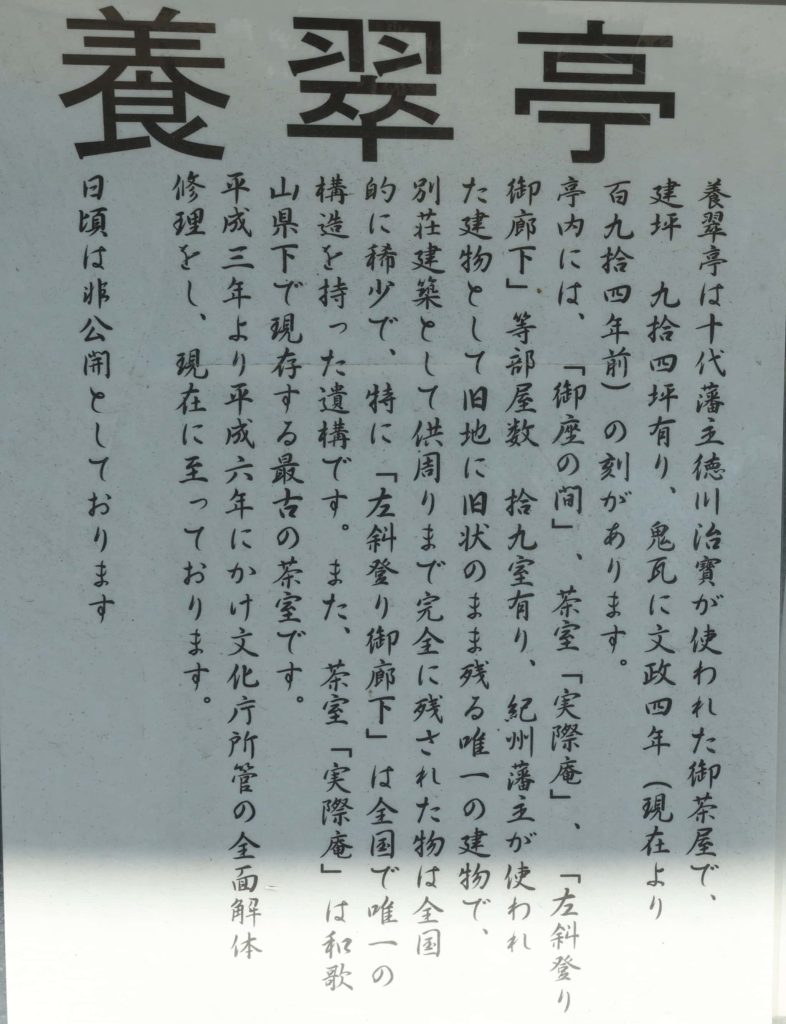 養翠亭
養翠亭は十代藩主徳川治寶が使われた御茶屋で、
建坪 九拾四坪有り、鬼瓦に文政四年(現在より
百九拾四年前)の刻があります。
亭内には、「御座の間」、茶室「実際庵」、「左斜登り
御廊下」等部屋数 拾九室有り、紀州藩主が使われ
た建物として旧地に旧状のまま残る唯一の建物で、
別荘建築として供周りまで完全に残された物は全国
的に稀少で、特に「左斜登り御廊下」は全国で唯一の
構造を持った遺構です。また、茶室「実際庵」は和歌
山県下で現存する最古の茶室です。
平成三年より平成六年にかけ文化庁所管の全面解体
修理をし、現在に至っております。
日頃は非公開としております